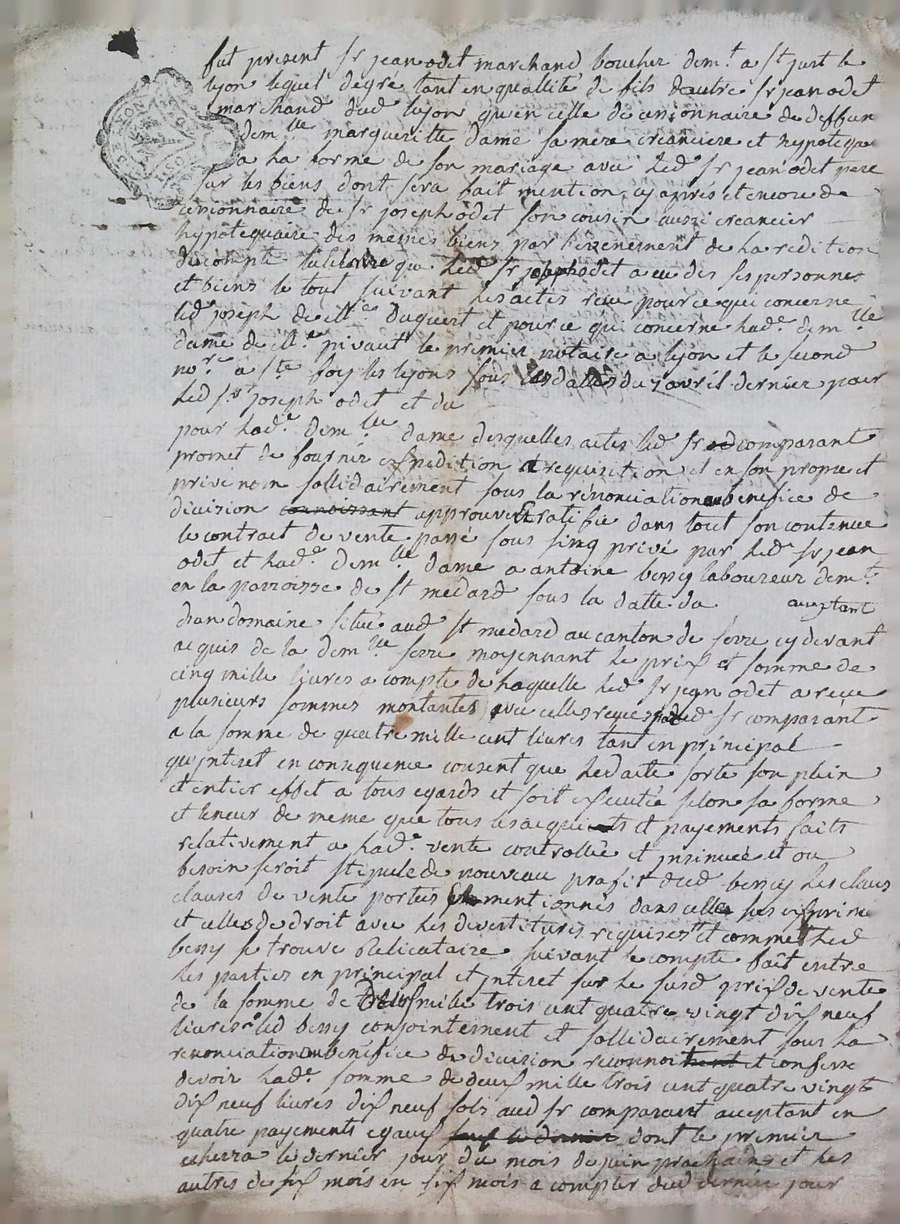 fut present sr jean odet marchand boucher demt a st just le
lyon lequel degre tant en quallité de fils dautre sr jean odet
marchand dud lyon quen celle de cessionnaire de deffun
demlle margueritte dame sa mere creanciere et hypoteque
a la forme de son mariage avec led sr jean odet pere
sur les biens dont sera fait mention cy apres et encore de
cessionnaire de sr joseph odet son cousin aussi creancier
hypotequaire des memes biens par levenement de la redition
du compte tutelaire que led sr joseph odet a eu des ses personnes
et biens le tout suivant les actes recu pour ce qui concerne
led joseph de me duguert et pour ce qui concerne lade demlle
dame de me pivaut le premier notaire a lyon et le second
nore a ste foy les lyons sous les dattes du 7 avril dernier pour
led sr joseph odet et du
pour lade demlle dame desquelles actes led sr comparant
promet de fournir expedition a requisition et en son propre et
privé nom sollidairement sous la renonciation au benefice de
division connoissant approuve et ratifie dans tout son contenue
le contrat de vente passé sous sing privé par led sr jean
odet et lade demlle dame a antoine bessy laboureur demt
en la parroisse de st medard sous la datte du acceptant
dun domaine situé aud st medard au canton de serre cy devant
acquis de la demlle serre moyennant le prix et somme de
cinq mille livres a compte de laquelle led sr jean odet a recu
plusieurs sommes montantes avec celles recues par led sr comparant
a la somme de quatre mille cent livres tant en principal
quinteret en consequence consent que led acte sorte son plein
et entier effet a tous egards et soit executée selon sa forme
et teneur de meme que tous les acquits et payements faits
relativement a lade vente controllée et insinuée et ou
besoin seroit stipule de nouveau profit dud bessy les claus
clauses de vente portés et mentionnés dans celle les exprime
et celles de droit avec les devestitures requises et comme led
bessy se trouve relicataire suivant le compte fait entre
les parties en principal et interet sur le susd prix de vente
de la somme de deux mille trois cent quatre vingt dix neuf
livres led bessy conjointement et sollidairement sous la
renonciation au benefice de division reconnoit et confesse
devoir lade somme de deux mille trois cent quatre vingt
dix neuf livres dix neuf sols aud sr comparant acceptant en
quatre payements egaux sauf le dernier dont le premier
echerra le dernier jour du mois de juin prochain et les
autres de six mois en six mois a compter dud dernier jour